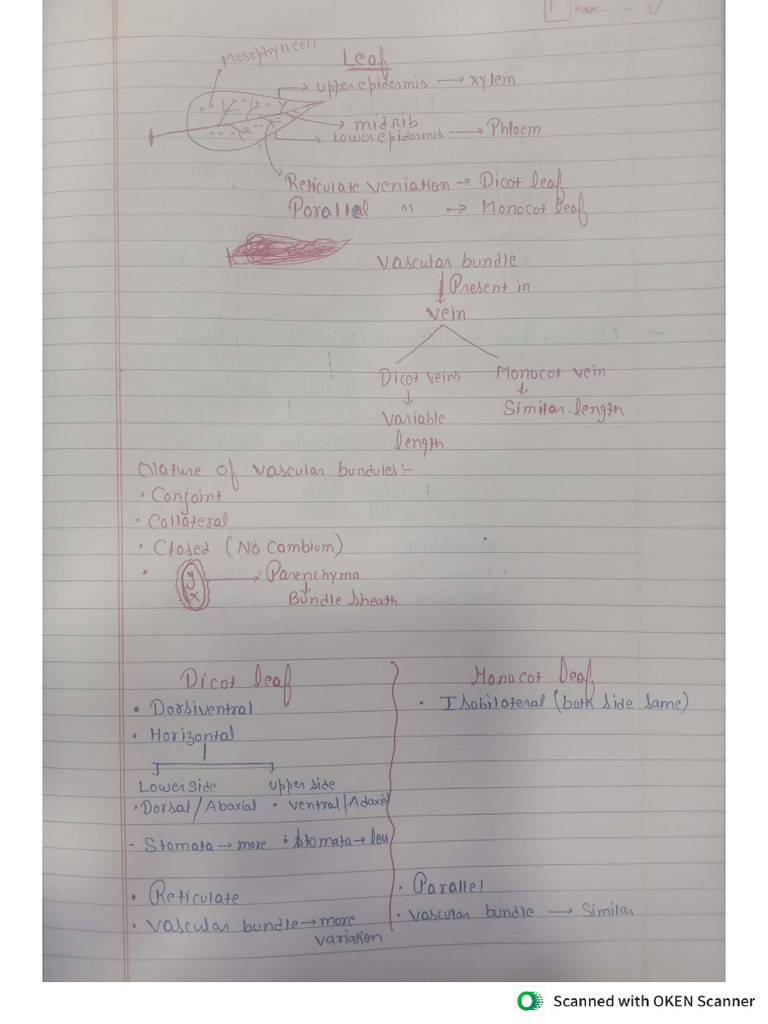 Page
Mesophyll cell
Leaf
upper epidermis → xylem
midrib
Lower epidermis → Phloem
Reticulate veniation → Dicot leaf
Parallel " → Monocot leaf
Vascular bundle
Present in
vein
Dicot veins Monocot vein
Variable Similar length
length
Nature of vascular bundules:-
• Conjoint
• Collateral
• Closed (No Cambium)
• Parenchyma
Bundle sheath
Dicot leaf Monocot leaf
• Dorsiventral • Isobilateral (both side same)
• Horizontal
Lower side upper side
• Dorsal/Abaxial • ventral/Adaxial
- Stomata → more • stomata → less
• Reticulate • Parallel
• Vascular bundle → more • vascular bundle → Similar
variation
Scanned with OKEN Scanner